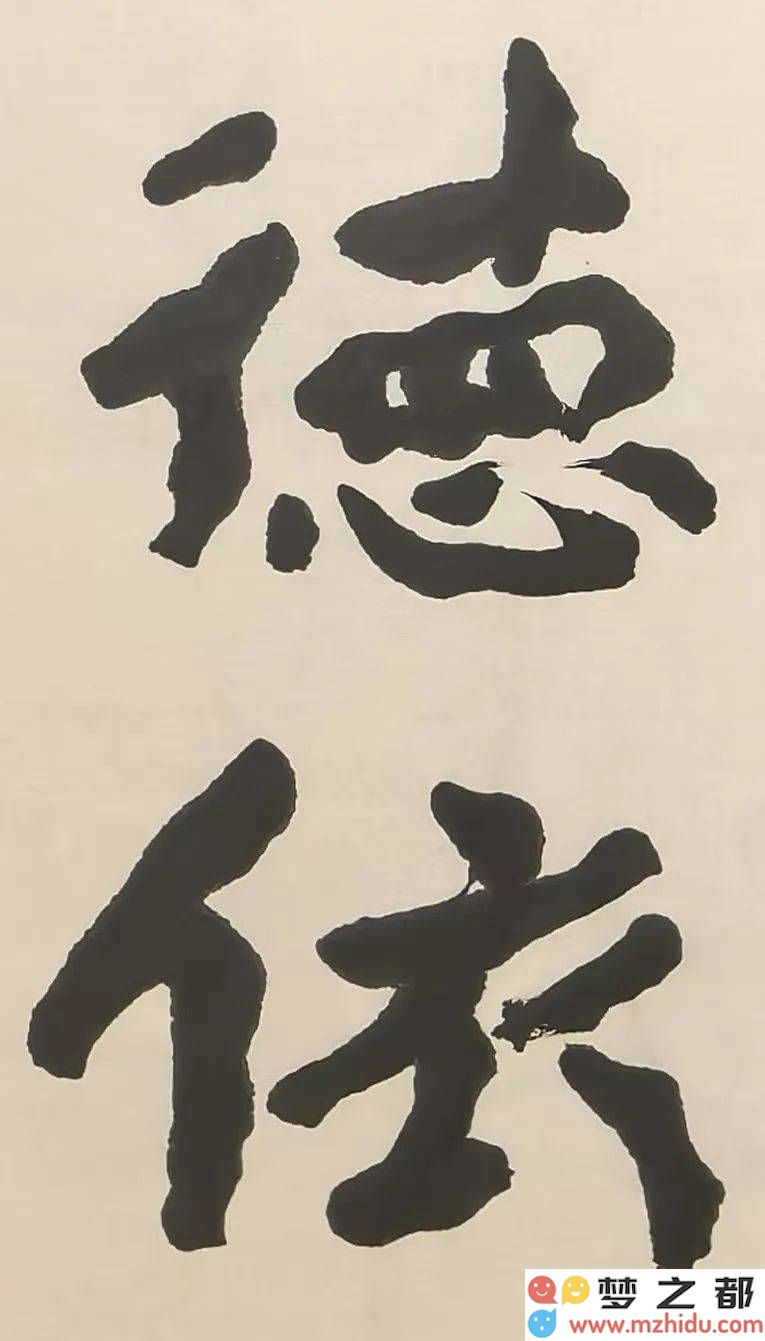 德
依
梦之都
www.mzhidu.com